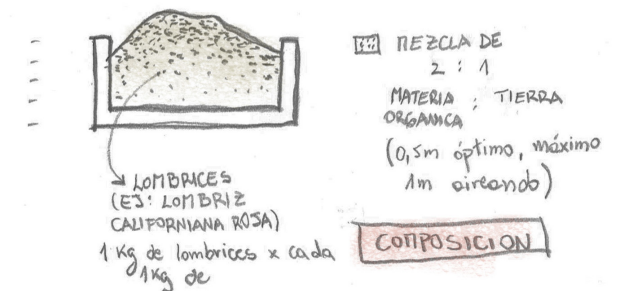 MEZCLA DE
2 : 1
MATERIA ; TIERRA
ORGANICA
(0,5m óptimo, máximo
1m aireando)
LOMBRICES
(EJ: LOMBRIZ
CALIFORNIANA ROJA)
1 Kg de lombrices x cada
1Kg de
COMPOSICION